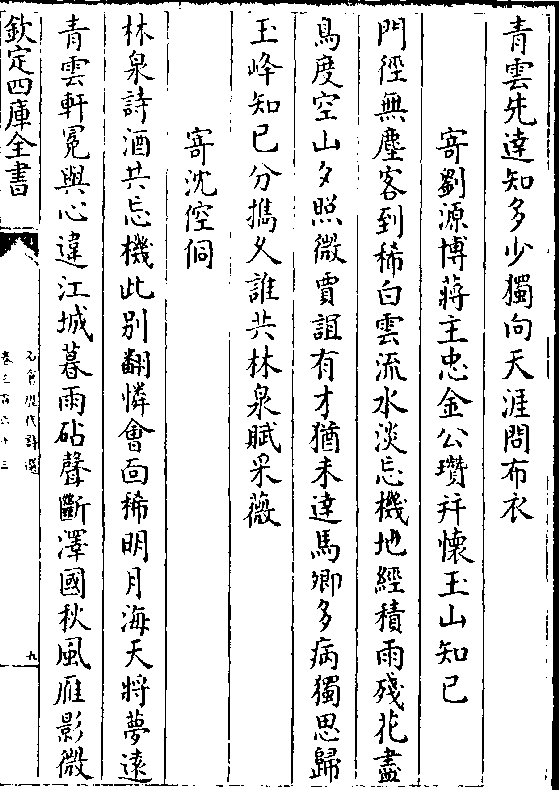 青雲先達知多少獨向天涯問布衣
寄劉源博蔣主忠金公瓚并懷玉山知己
門徑無塵客到稀白雲流水淡忘機地經積雨殘花盡
鳥度空山夕照微賈誼有才猶未達馬卿多病獨思歸
玉峰知已分擕久誰共林泉賦采薇
寄沈倥侗
林泉詩酒共忘機此别翻憐會靣稀明月海天將夢遠
青雲軒冕與心違江城暮雨砧聲斷澤國秋風雁影微
欽定四庫全書
石倉歷代詩選
卷三百六十三
九